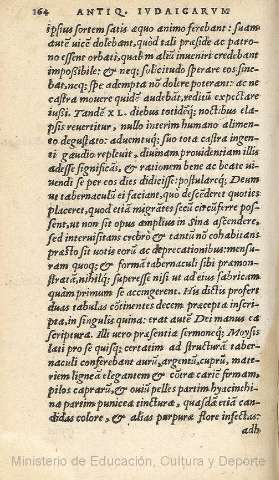 164 ANTIQ. IVDAICARVM
ipsius sortem satis æquo animo ferebant: suam
autē uicē dolebant, quòd tali præside ac patro-
no essent orbati, qualem aliū inuenirī credebant
impossibile: & neq; solicitudo sperare eos sine-
bat, neq; spe adempta nō dolere poterant: ac ne
castra mouere quidē audebāt, reditū expectare
iussi. Tandē XL. diebus totidēq; noctibus ela-
psis reuertitur, nullo interim humano alimen-
to degustato: aduentuq; suo tota castra ingen-
ti gaudio repleuit, diuinam prouidentiam illis
adesse significās, & rationem bene ac beate ui-
uendi se per eos dies didicisse: postularēq; Deum
ut tabernaculū ei faciant, quo descēderet quoties
placeret, quod etiā migrātes secū circūferre pos-
sent, ut non sit opus amplius in Sina ascendere,
sed interuisitans crebrò & tantū nō cohabitans
præsto sit uotis eorū ac deprecationibus: mensu-
ram quoq; & formā tabernaculi sibi præmon-
stratā, nihilq; superesse nisi ut ad eius fabricam
quàm primum se accingerent. His dictis profert
duas tabulas cōtinentes decem præcepta inscri-
pta, in singulis quina: erat autē Dei manus ea
scriptura. Illi uero præsentia sermoneq; Moysis
læti pro se quisq; certatim ad structurā taber-
naculi conferebant aurū, argentū, cuprū, mate-
riem ligneā elegantem & cōtra cariē firmam,
pilos caprarū, & ouiū pelles partim hyacinthi-
na partim punicea tinctura, quasdā etiā can-
didas colore, & alias purpuræ flore infectas:
adh
Ministerio de Educación, Cultura y Deporte